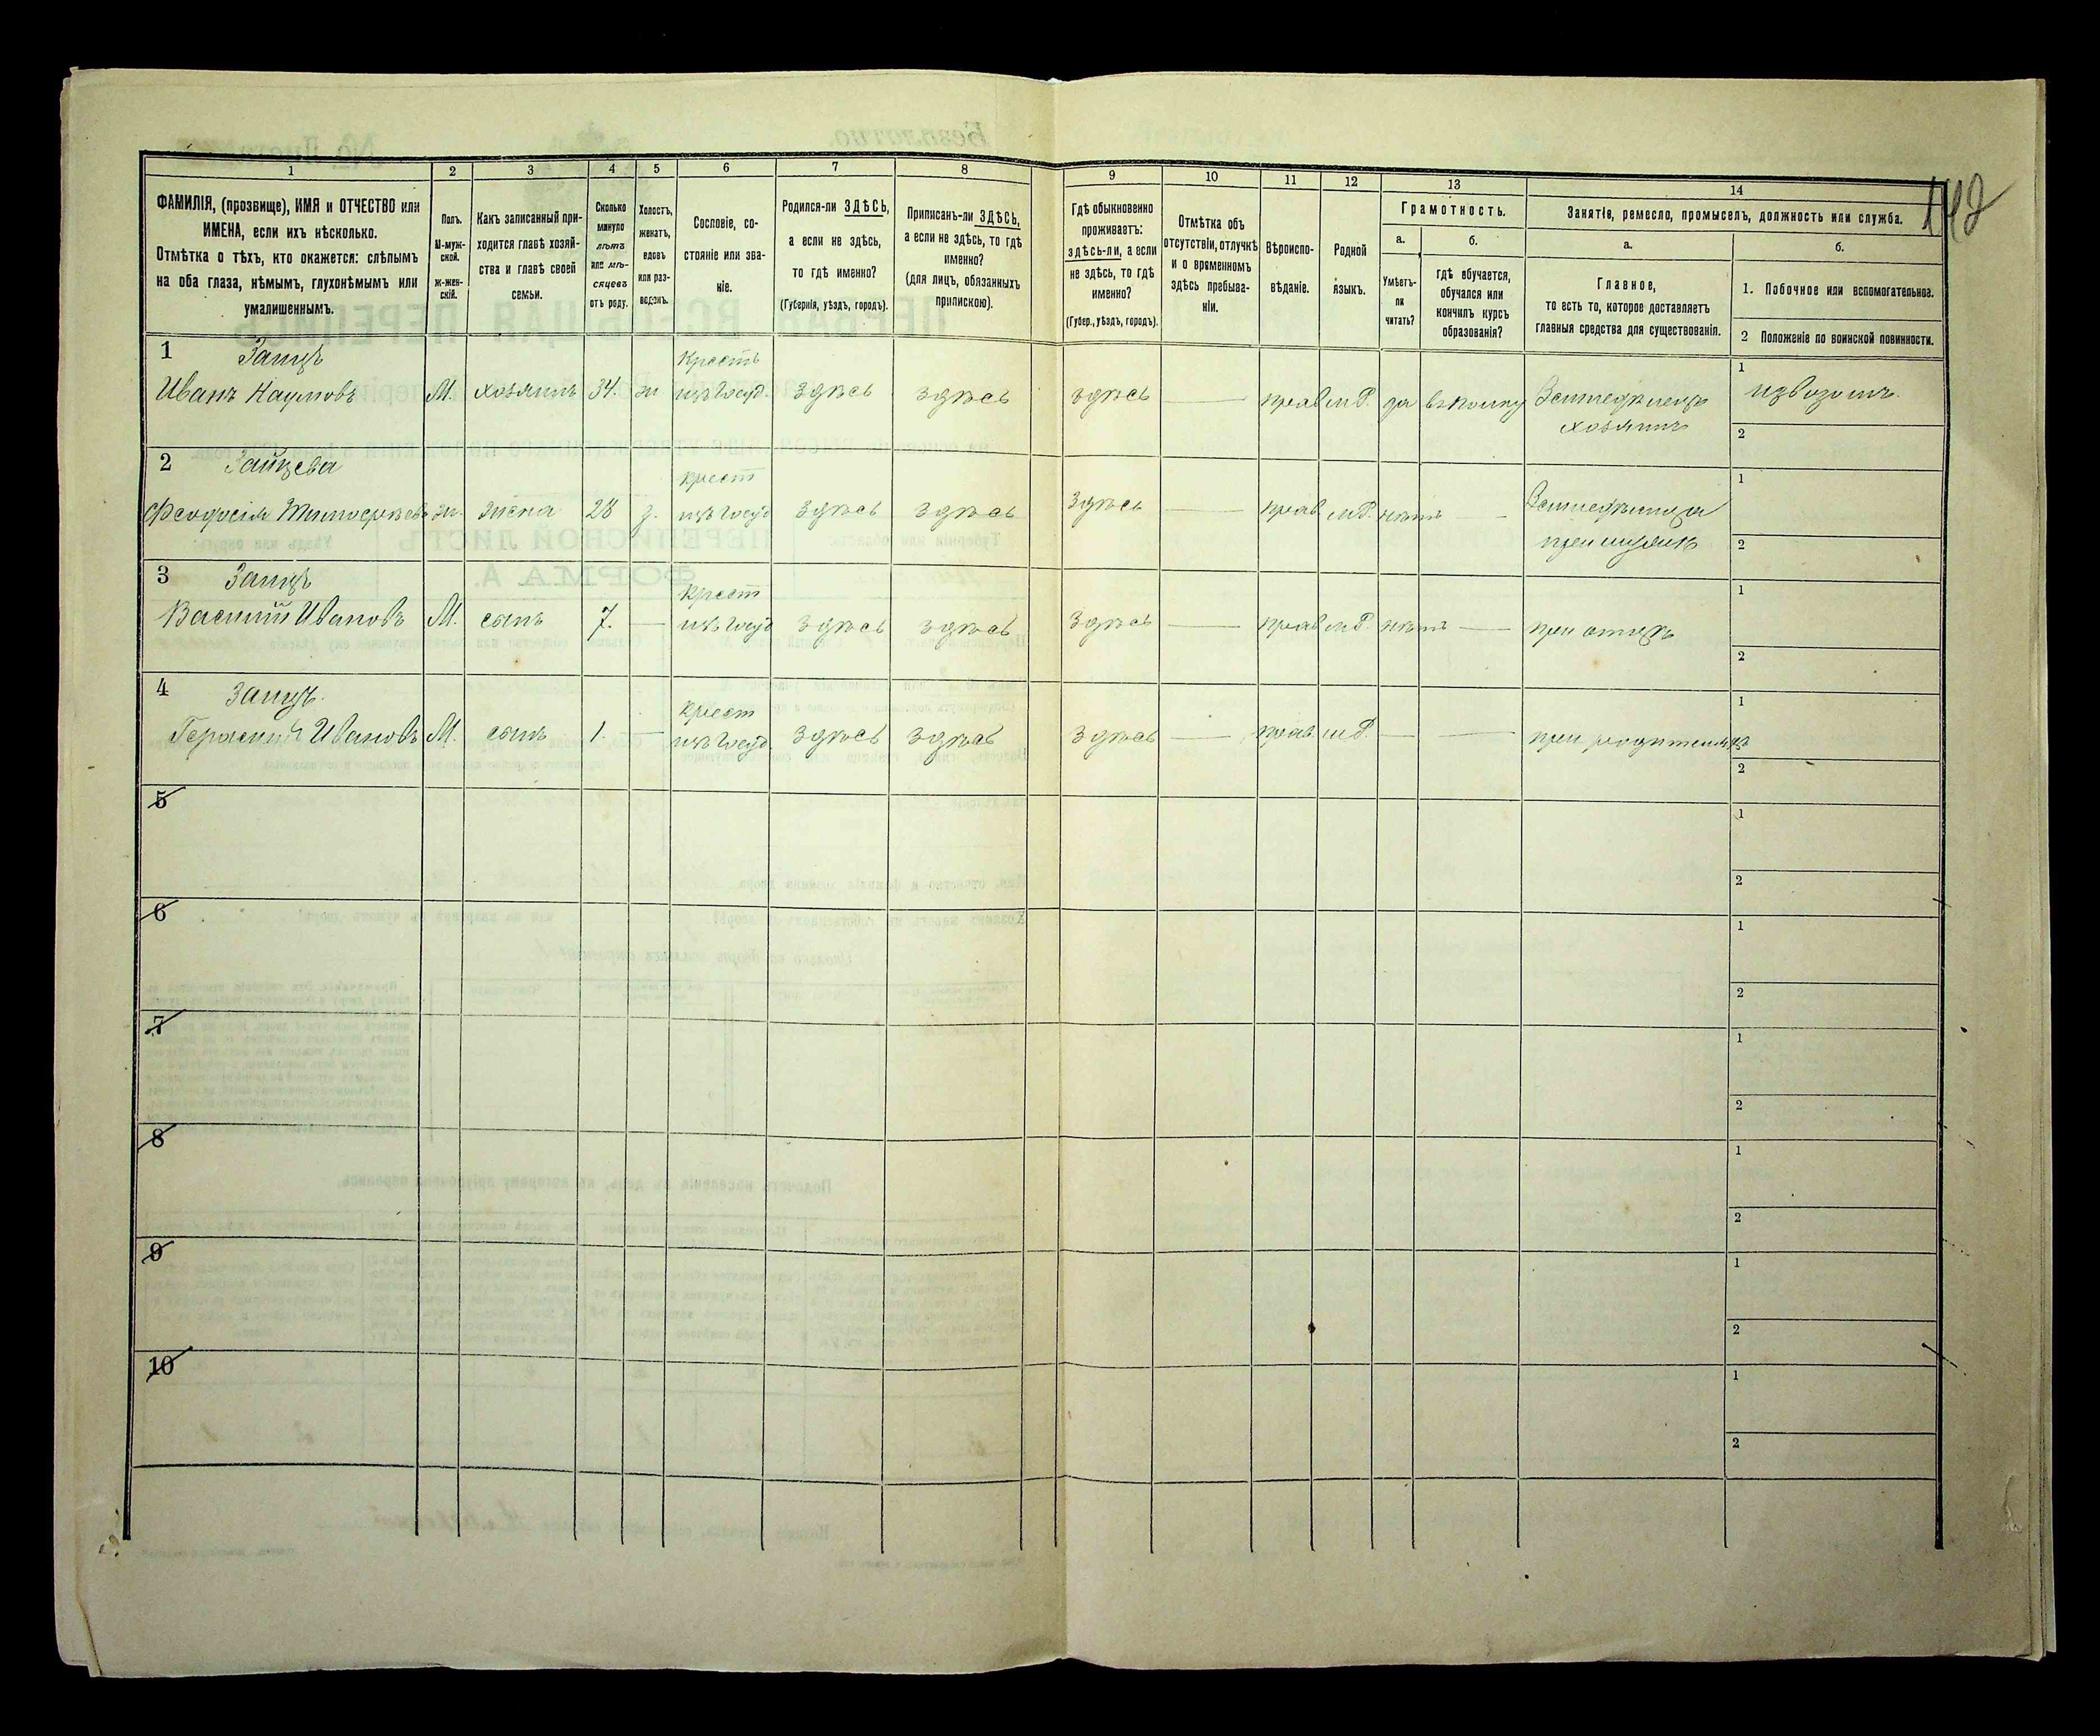 142
1 2 3 4 5 6 7 8 9 10 11 12 13 14
ФАМИЛІЯ, (прозвище), ИМЯ и ОТЧЕСТВО или
ИМЕНА, если ихъ нѣсколько.
Отмѣтка о тѣхъ, кто окажется: слѣпымъ
на оба глаза, нѣмымъ, глухонѣмымъ или
умалишеннымъ.
Полъ.
М-муж-
ской.
Ж-жен-
скій.
Какъ записанный при-
ходится главѣ хозяй-
ства и главѣ своей
семьи.
Сколько
минуло
лѣтъ
или мѣ-
сяцевъ
отъ роду.
Холостъ,
женатъ,
вдовъ
или раз-
веденъ.
Сословіе, со-
стояніе или зва-
ніе.
Родился-ли ЗДѢСЬ,
а если не здѣсь,
то гдѣ именно?
(Губернія, уѣздъ, городъ).
Приписанъ-ли ЗДѢСЬ,
а если не здѣсь, то гдѣ
именно?
(для лицъ, обязанныхъ
припискою).
Гдѣ обыкновенно
проживаетъ:
здѣсь-ли, а если
не здѣсь, то гдѣ
именно?
(Губер., уѣздъ, городъ).
Отмѣтка объ
отсутствіи, отлучкѣ
и о временномъ
здѣсь пребыва-
ніи.
Вѣроиспо-
вѣданіе.
Родной
языкъ.
Грамотность.
а. б.
Умѣетъ-
ли
читать?
гдѣ обучается,
обучался или
кончилъ курсъ
образованія?
Занятіе, ремесло, промыселъ, должность или служба.
а. б.
Главное,
то есть то, которое доставляетъ
главныя средства для существованія.
1. Побочное или вспомогательное.
2 Положеніе по воинской повинности.
1 Заяцъ Крестъ 1
Иванъ Наумовъ М. хозяинъ 34. ж изъ Госуд. здѣсь здѣсь здѣсь — прав м.Р. да Земледѣлецъ извозомъ.
хозяинъ 2
2 Зайцева крест 1
Феодосія Тимофеева ж. жена 28 з. изъ Госуд здѣсь здѣсь здѣсь — прав м.Р. нѣтъ — Земледѣлица
при мужѣ 2
3 Заяцъ Крест 1
Василій Ивановъ М. сынъ 7. — изъ Госуд здѣсь здѣсь здѣсь — прав м.Р. нѣтъ — при отцѣ
2
4 Заяцъ. Крест 1
Герасим Ивановъ М. сынъ 1. — изъ Госуд. здѣсь здѣсь здѣсь — прав м.Р. — — при родителяхъ
2
5 1
2
6 1
2
7 1
2
8 1
2
9 1
2
10 1
2